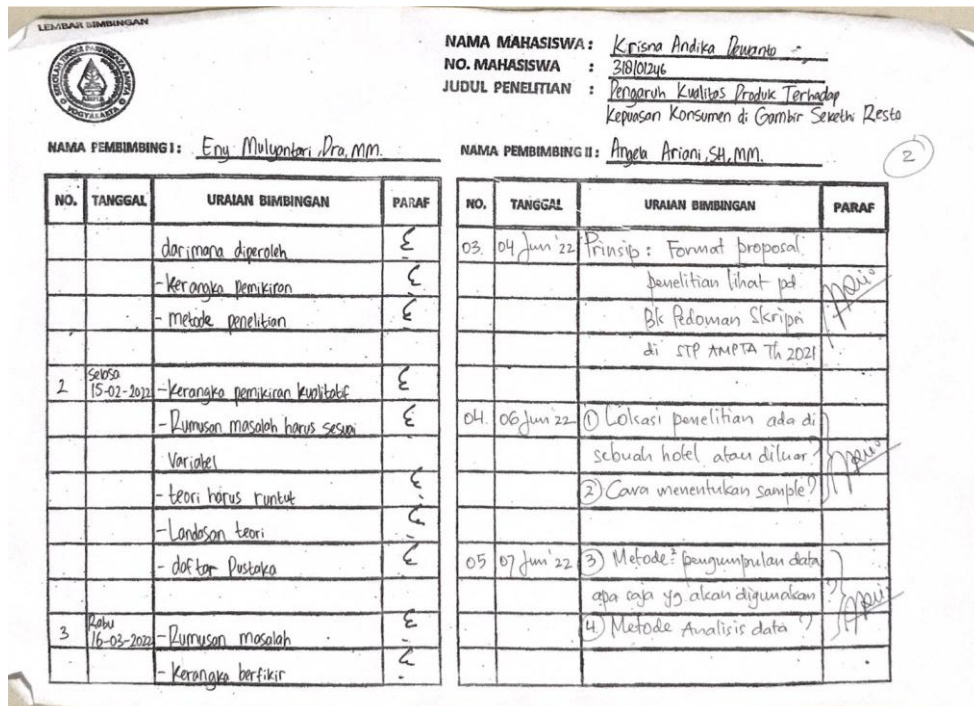 LEMBAR BIMBINGAN
SEKOLAH TINGGI PARIWISATA AMPTA
YOGYAKARTA
NAMA MAHASISWA : Krisna Andika Dewanto
NO. MAHASISWA : 318101246
JUDUL PENELITIAN : Pengaruh Kualitas Produk Terhadap
Kepuasan Konsumen di Gambir Sekethi Resto
NAMA PEMBIMBING I : Eny Mulyantari, Dra, MM.
NAMA PEMBIMBING II : Angela Ariani, SH, MM.
2
NO. TANGGAL URAIAN BIMBINGAN PARAF
darimana diperoleh
- Kerangka Pemikiran
- metode penelitian
2 Selasa
15-02-2022 - Kerangka pemikiran kualitatif
- Rumusan masalah harus sesuai
Variabel
- teori harus runtut
- Landasan teori
- daftar Pustaka
3 Rabu
16-03-2022 - Rumusan masalah
- Kerangka berfikir
NO. TANGGAL URAIAN BIMBINGAN PARAF
03. 04 Jun '22 Prinsip : Format proposal
penelitian lihat pd
Bk Pedoman Skripsi
di STP AMPTA Th 2021
04. 06 Jun '22 ① Lokasi penelitian ada di
sebuah hotel atau diluar?
② Cara menentukan sample?
05 07 Jun '22 ③ Metode² pengumpulan data
apa saja yg akan digunakan?
④ Metode Analisis data ?